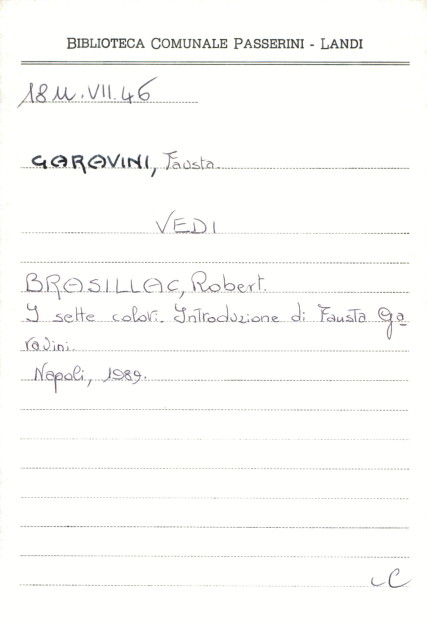 BIBLIOTECA COMUNALE PASSERINI - LANDI
18U.VII.46
GARAVINI, Fausta.
VEDI
BRASILLAC, Robert.
I sette colori. Introduzione di Fausta Ga
ravini.
Napoli, 1989.
C